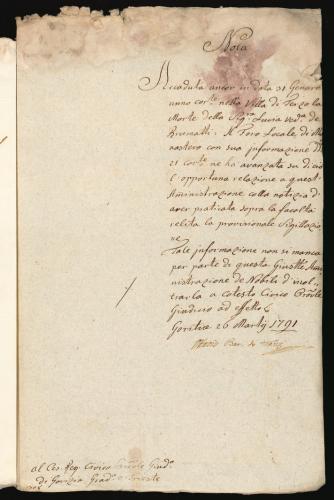 Nota
Accaduta ancor in data 31 Genaro
anno cortᵉ nella Villa di Terzo la
Morte della Sigʳᵃ Lucia Vedᵃ de
Brumatti. Il Foro Locale di
nastero con sua informazione
21 cortᵉ ne ha avanzata su di ciò
l'opportuna relazione a quest
Amministrazione colla notizia d'
aver praticata sopra la facoltà
relita la provisionale Sigillazio
ne
Tale informazione non si manca
per parte di questa
nistrazione de Nobili d'inol
trarla a cotesto Civico
Giudicio ad effetto
Gorizia 26 Marty 1791
al Ces. Reg. Civico Giudᵒ
di Gorizia